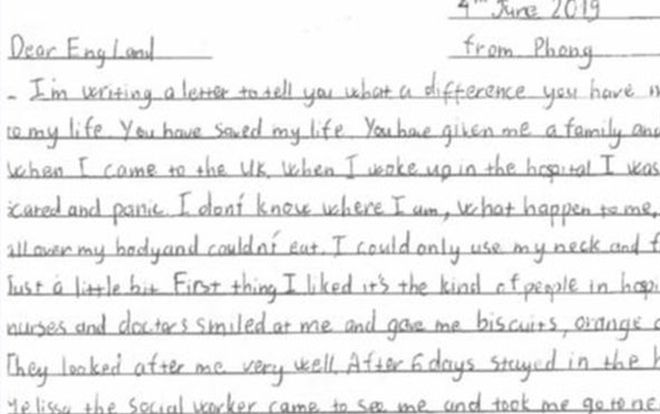 4th June 2019
Dear England
from Phong
- I'm writing a letter to tell you what a difference you have
to my life. You have saved my life. You have given me a family and
when I came to the UK. When I woke up in the hospital I was
scared and panic. I don't know where I am, what happen to me,
all over my body and couldn't eat. I could only use my neck and
Just a little bit. First thing I liked it's the kind of people in
nurses and doctors smiled at me and gave me biscuits, orange
They looked after me very well. After 6 days stayed in the
Melissa the social worker came to see me and took me go to